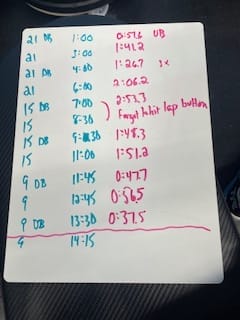 21 DB 1:00 0:57.6 UB
21 3:00 1:41.2
21 DB 4:00 1:26.7 3x
21 6:00 2:06.2
15 DB 7:00 2:53.3
15 8:30 Forgot to hit lap button
15 DB 9:30 1:48.3
15 11:00 1:51.2
9 DB 11:45 0:47.7
9 12:45 0:56.5
9 DB 13:30 0:37.5
9 14:15